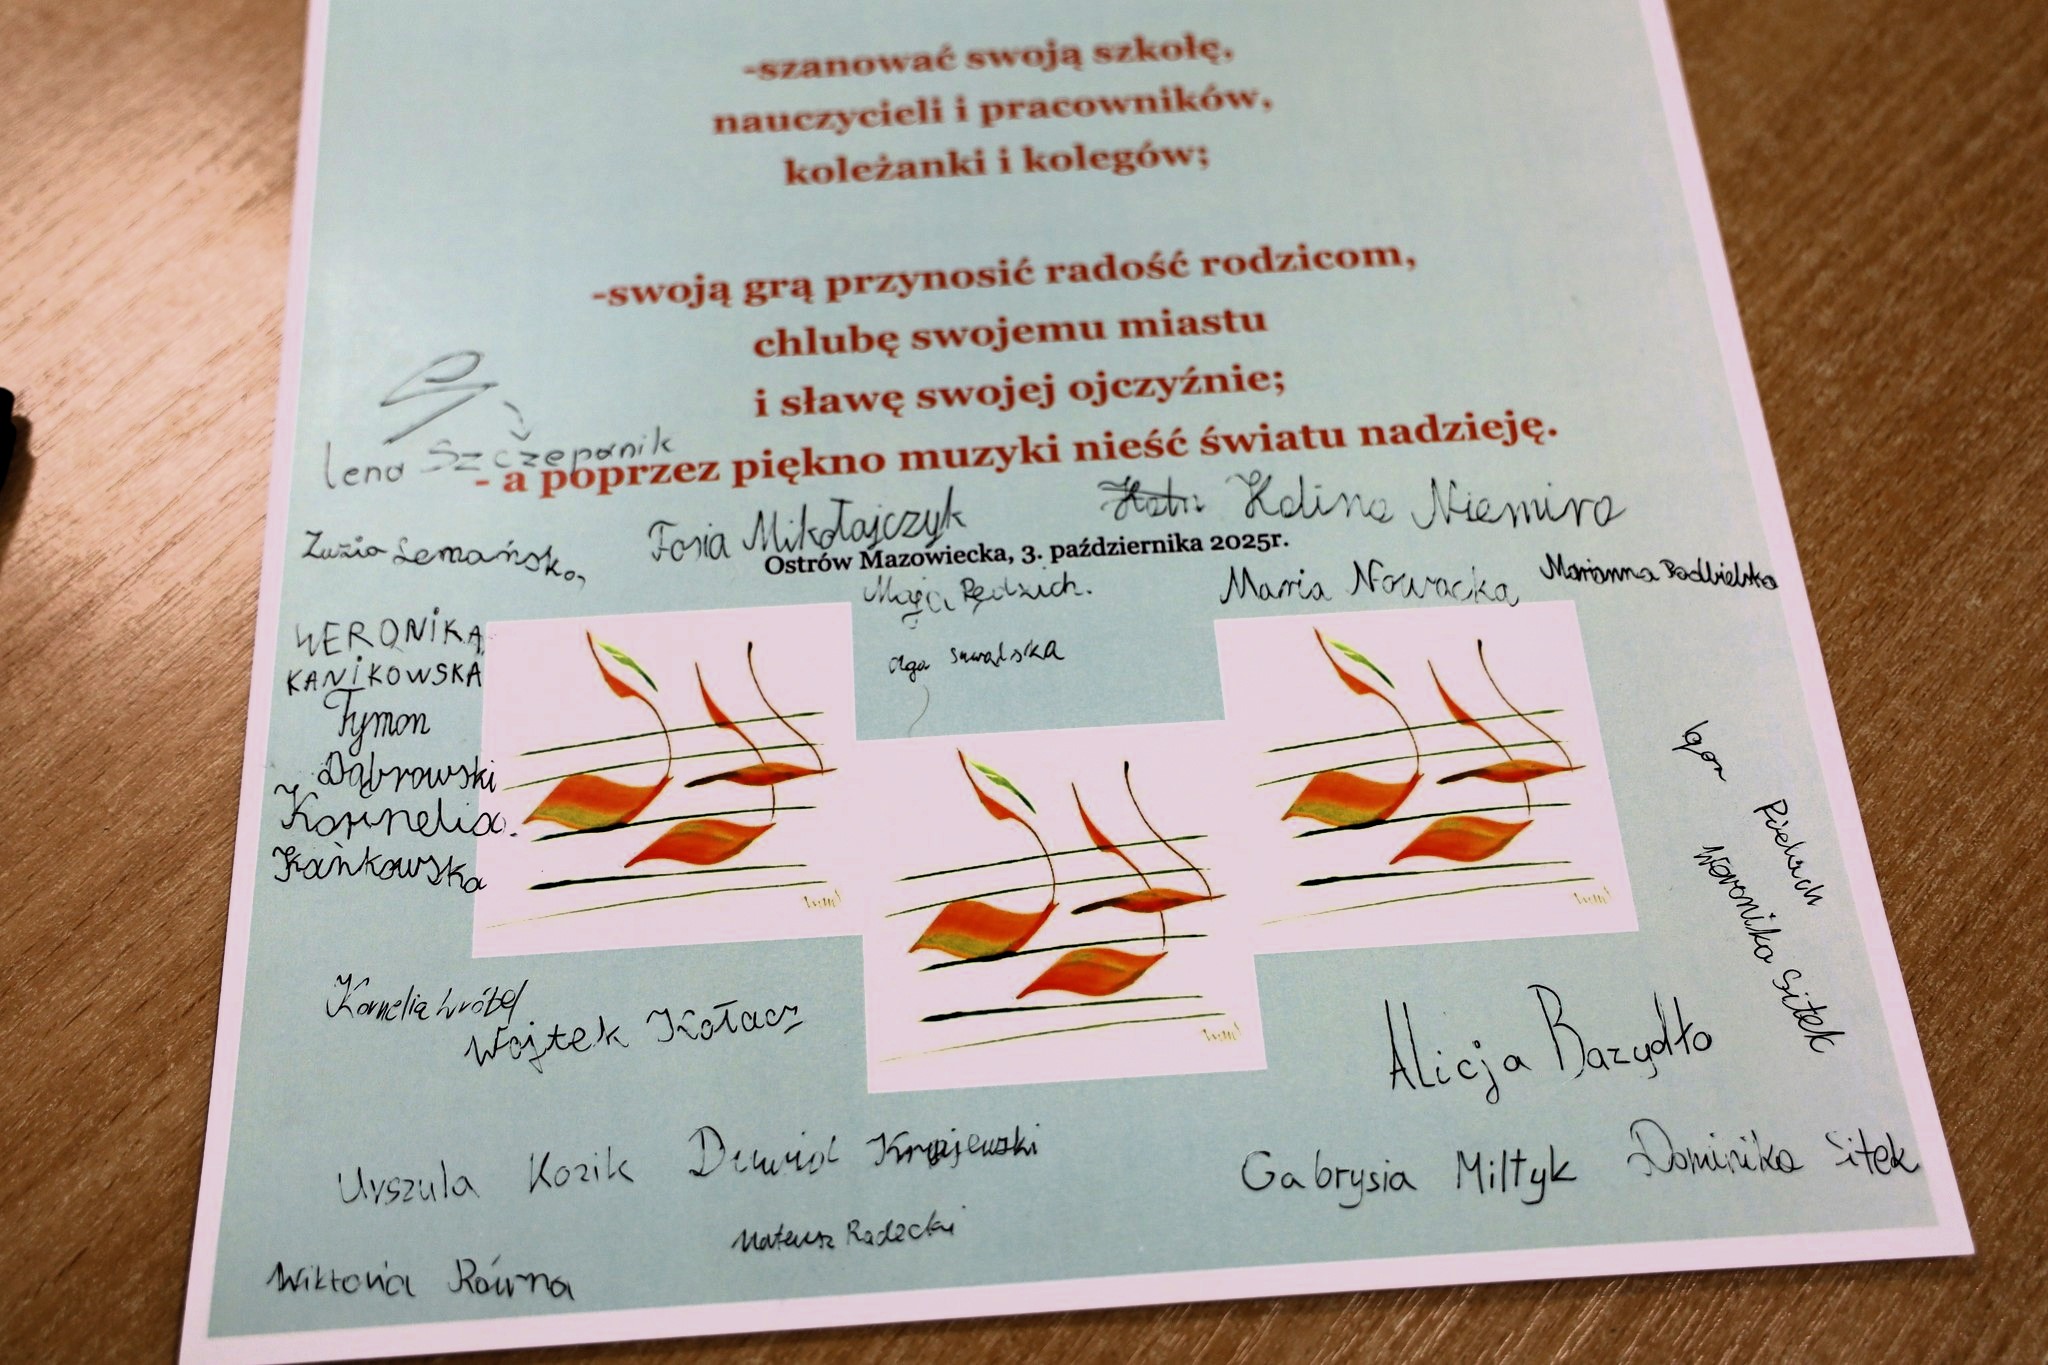 -szanować swoją szkołę,
nauczycieli i pracowników,
koleżanki i kolegów;
-swoją grą przynosić radość rodzicom,
chlubę swojemu miastu
i sławę swojej ojczyźnie;
- a poprzez piękno muzyki nieść światu nadzieję.
Lena Szczepanik
Halina Niemira
Zosia Mikołajczyk
Zuzia Lemańska
Ostrów Mazowiecka, 3. października 2025r.
Maja Rędzich.
Maria Nowacka
Marianna Podbielska
Olga Suwalska
WERONIKA
KANIKOWSKA
Tymon
Dąbrowski
Kornelia
Kańkowska
Igor
Weronika Sitek
Kornelia Wróbel
Wojtek Kołacz
Alicja Bazydło
Urszula Kozik
Dawid Krajewski
Gabrysia Miltyk
Dominika Sitek
Mateusz Radecki
Wiktoria Równa